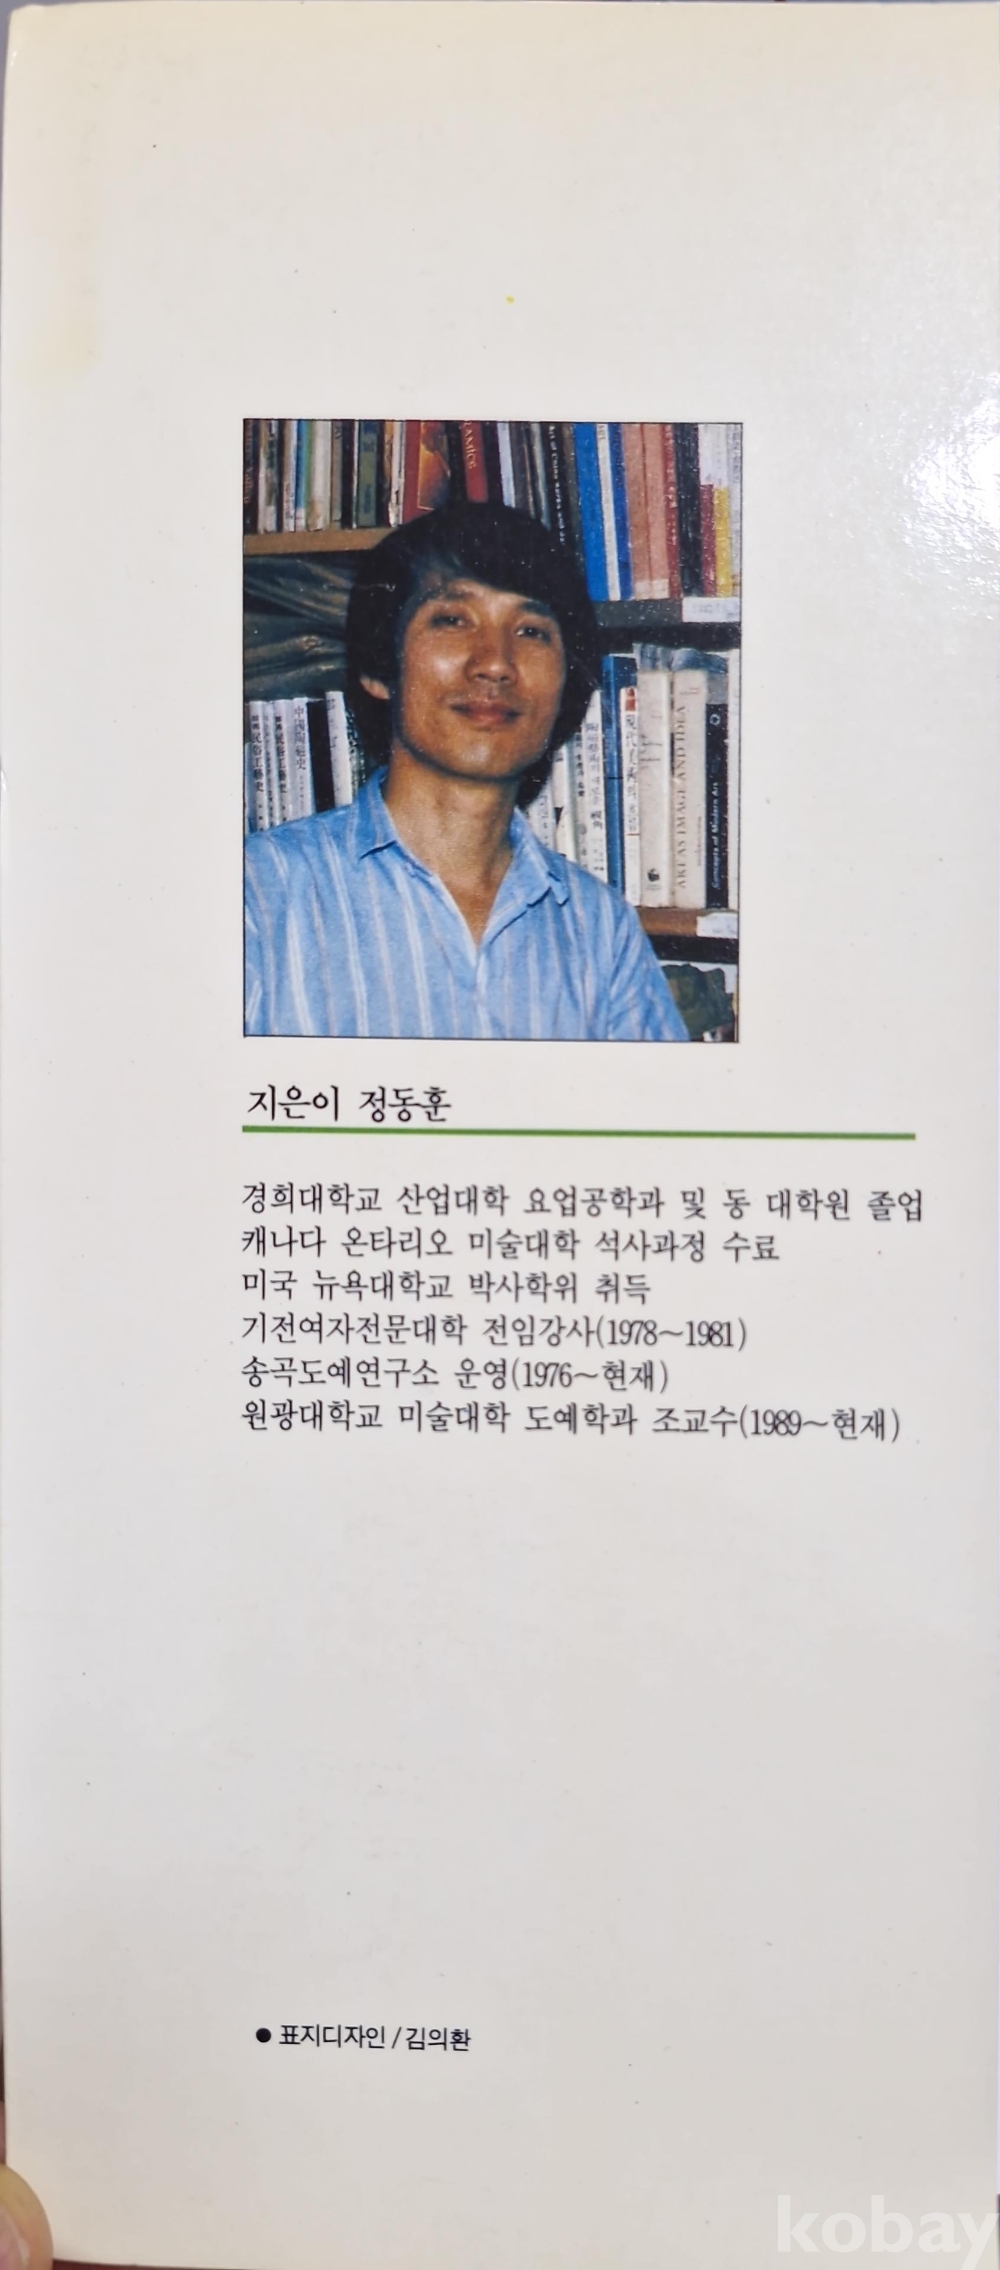 中国陶磁史
ART AS IMAGE AND IDEA
Concepts of Modern Art
지은이 정동훈
경희대학교 산업대학 요업공학과 및 동 대학원 졸업
캐나다 온타리오 미술대학 석사과정 수료
미국 뉴욕대학교 박사학위 취득
기전여자전문대학 전임강사(1978~1981)
송곡도예연구소 운영(1976~현재)
원광대학교 미술대학 도예학과 조교수(1989~현재)
● 표지디자인/김의환
kobay